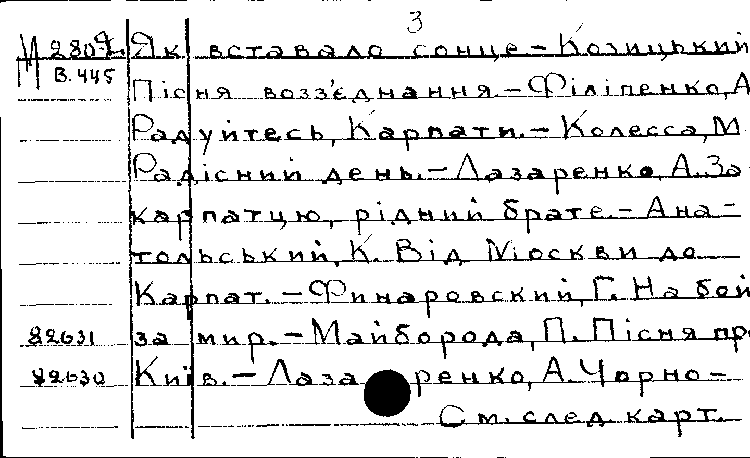 3
М 2807 Як вставало сонце – Козицький
В. 445
Пісня возз'єднання. – Філіпенко, А
Радуйтесь, Карпати. – Колесса, М
Радісний день. – Лазаренко, А. За
карпатцю, рідний брате. – Ана–
тольський, К. Від Москви до
Карпат. – Финаровский, Г. На бой
82631 за мир. – Майборода, П. Пісня про
82630 Київ. – Лазаренко, А. Чорно–
См. след. карт.